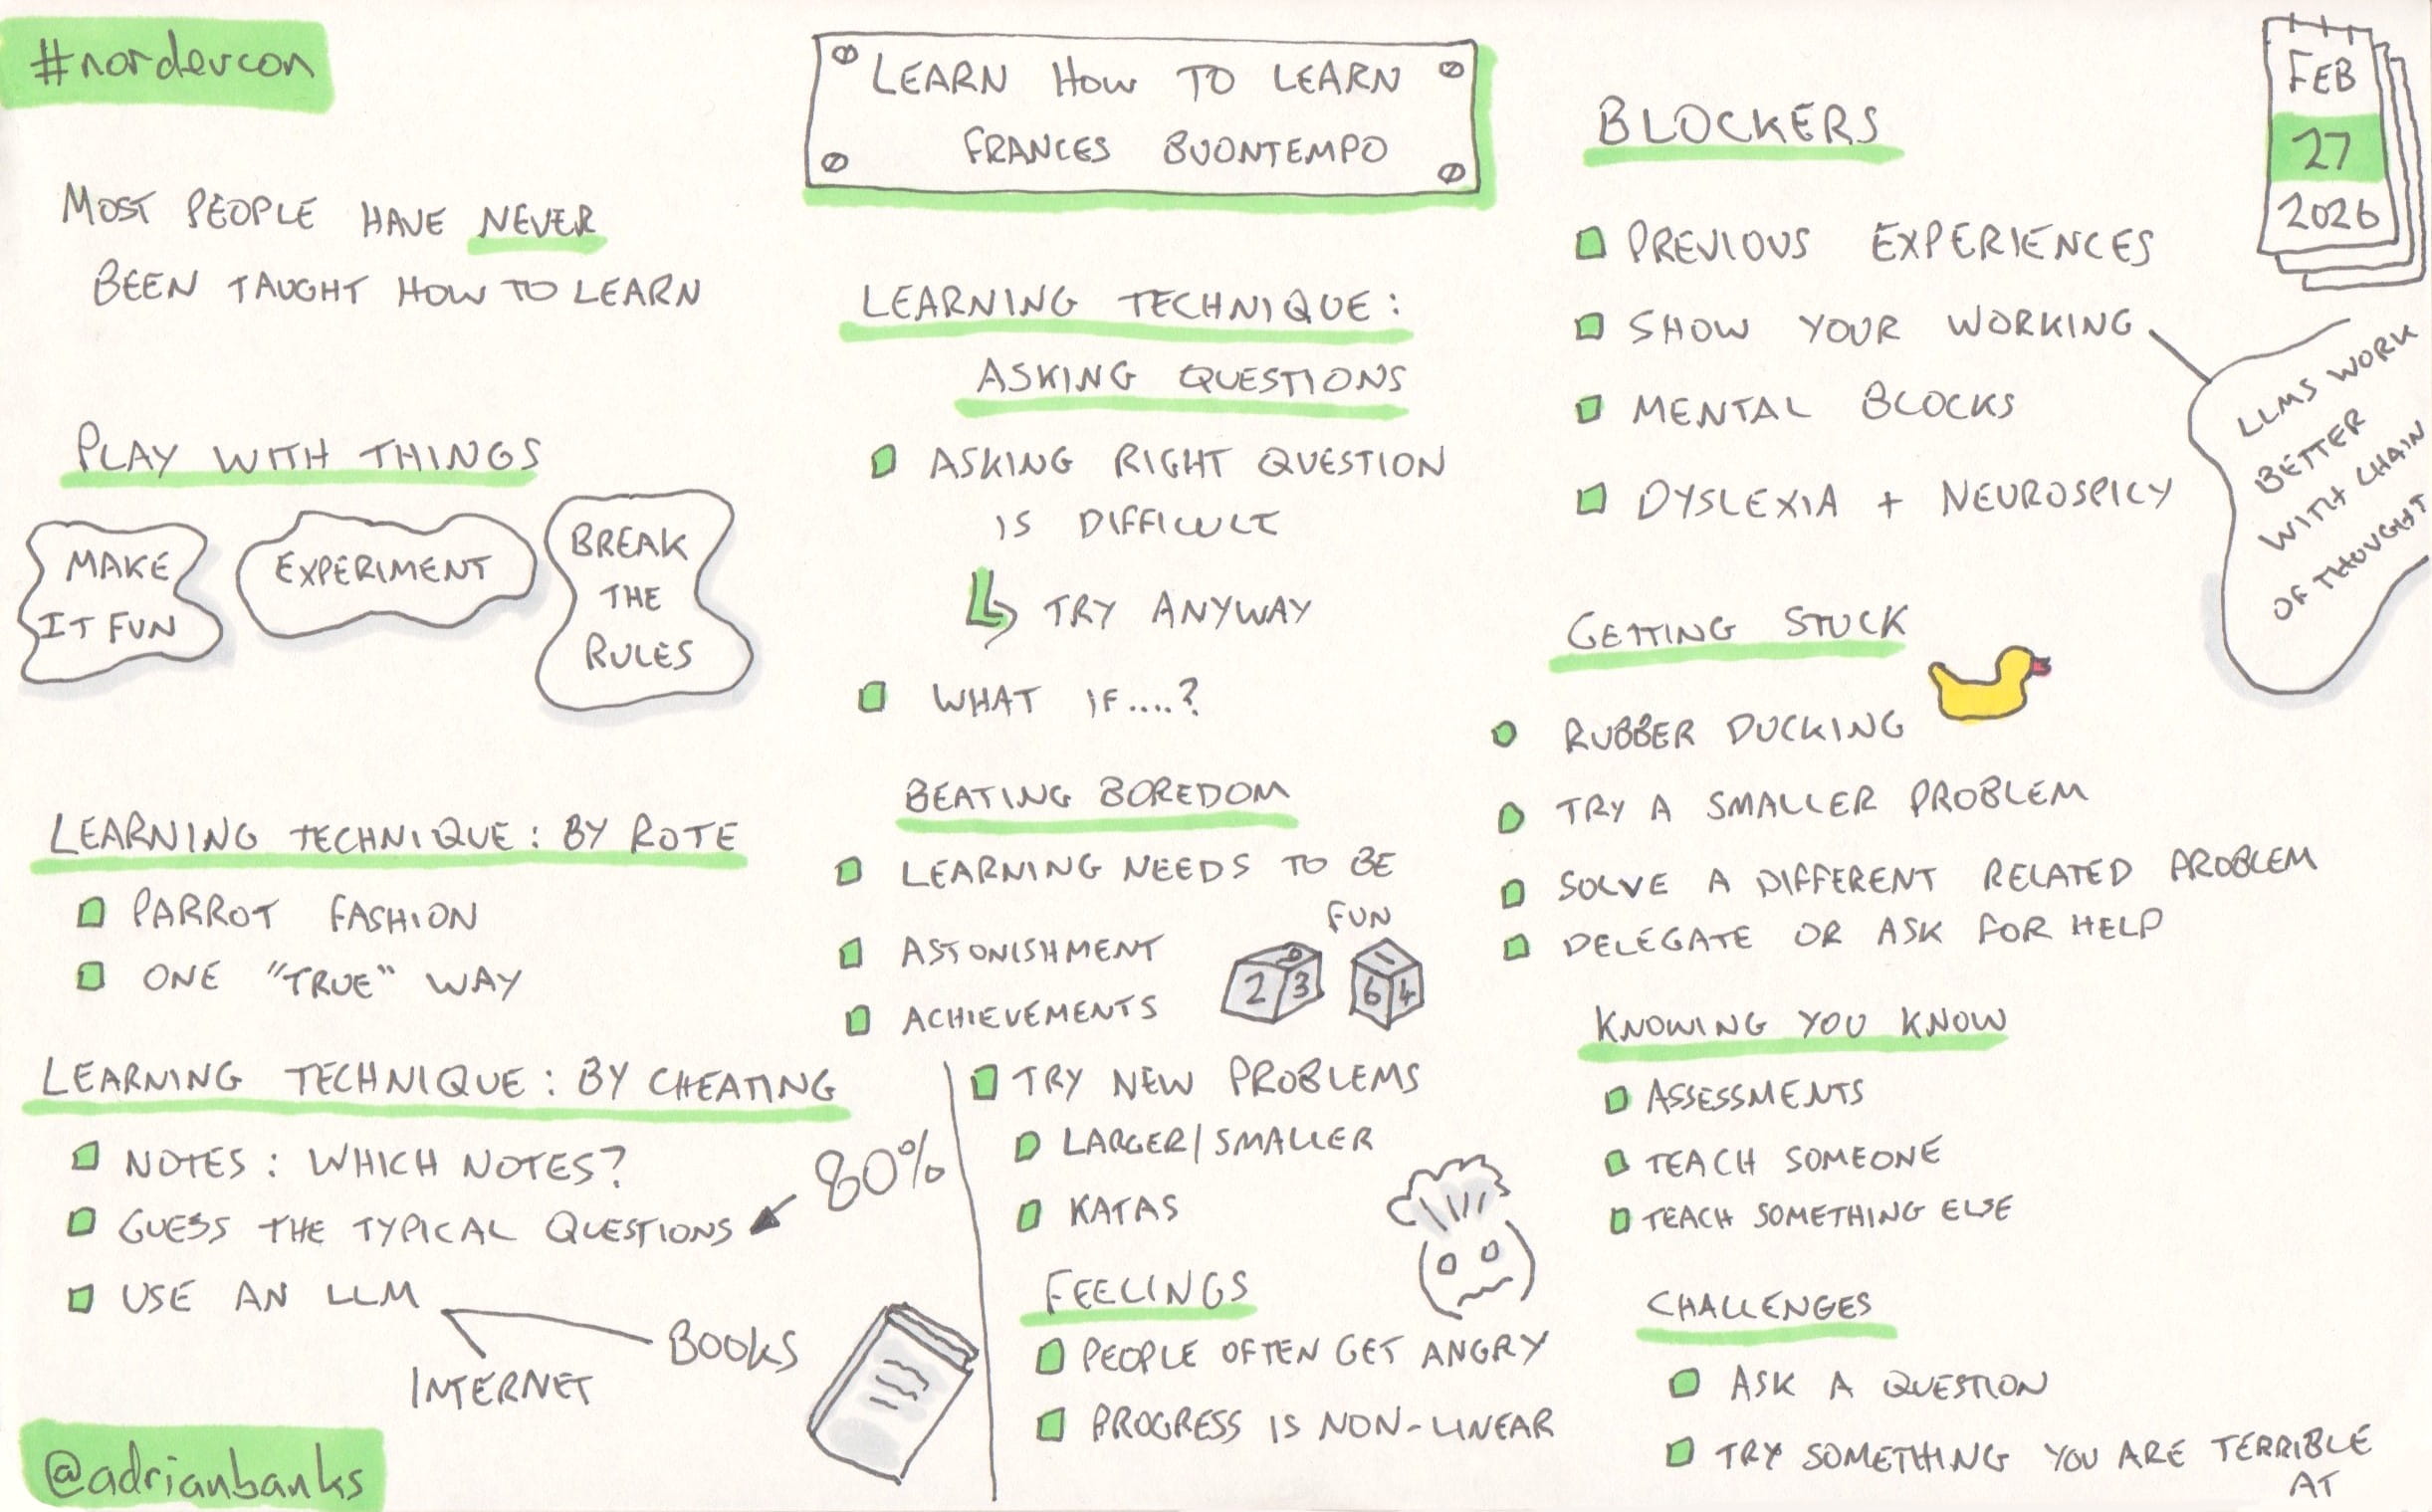 #nordevcon
LEARN HOW TO LEARN
FRANCES BUONTEMPO
FEB
27
2026
MOST PEOPLE HAVE NEVER
BEEN TAUGHT HOW TO LEARN
PLAY WITH THINGS
MAKE
IT FUN
EXPERIMENT
BREAK
THE
RULES
LEARNING TECHNIQUE: BY ROTE
PARROT FASHION
ONE "TRUE" WAY
LEARNING TECHNIQUE: BY CHEATING
NOTES: WHICH NOTES?
GUESS THE TYPICAL QUESTIONS
80%
USE AN LLM
INTERNET
BOOKS
@adrianbanks
LEARNING TECHNIQUE:
ASKING QUESTIONS
ASKING RIGHT QUESTION
IS DIFFICULT
TRY ANYWAY
WHAT IF....?
BEATING BOREDOM
LEARNING NEEDS TO BE
FUN
ASTONISHMENT
ACHIEVEMENTS
2 3
6 4
TRY NEW PROBLEMS
LARGER/SMALLER
KATAS
FEELINGS
PEOPLE OFTEN GET ANGRY
PROGRESS IS NON-LINEAR
BLOCKERS
PREVIOUS EXPERIENCES
SHOW YOUR WORKING
LLMS WORK
BETTER
WITH CHAIN
OF THOUGHT
MENTAL BLOCKS
DYSLEXIA + NEUROSPICY
GETTING STUCK
RUBBER DUCKING
TRY A SMALLER PROBLEM
SOLVE A DIFFERENT RELATED PROBLEM
DELEGATE OR ASK FOR HELP
KNOWING YOU KNOW
ASSESSMENTS
TEACH SOMEONE
TEACH SOMETHING ELSE
CHALLENGES
ASK A QUESTION
TRY SOMETHING YOU ARE TERRIBLE
AT